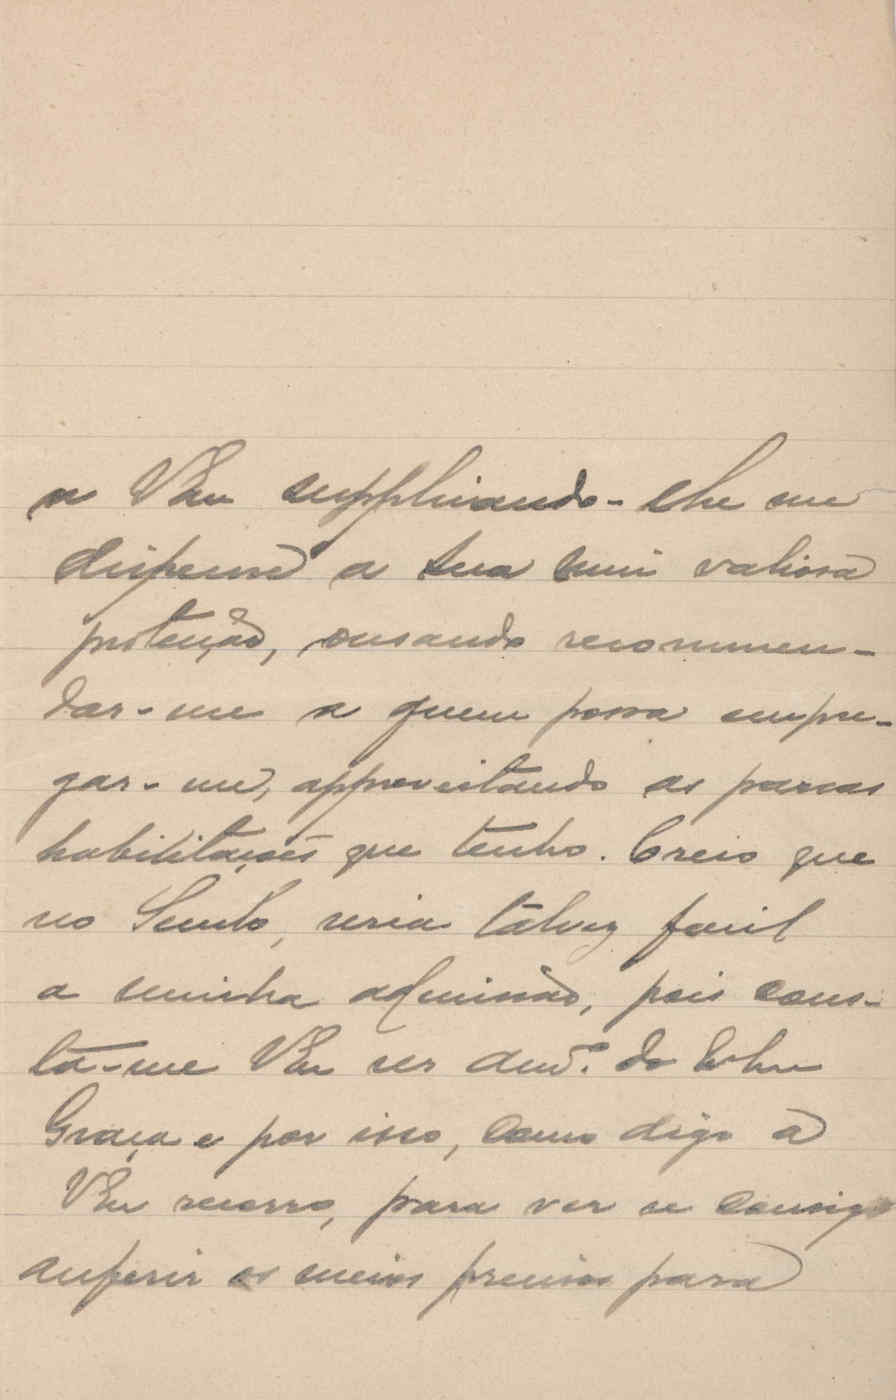 a VEx supplicando-lhe me
dispense a sua mui valiosa
protecção, ousando recommen-
dar-me a quem possa empre-
gar-me, approveitando as parcas
habilitações que tenho. Creio que
no Seculo, seria talvez facil
a minha admissão, pois cons-
ta-me VEx ser amº. do
Graça e por isso, como digo a
VEx recorro, para ver se consigo
auferir os meios precisos para